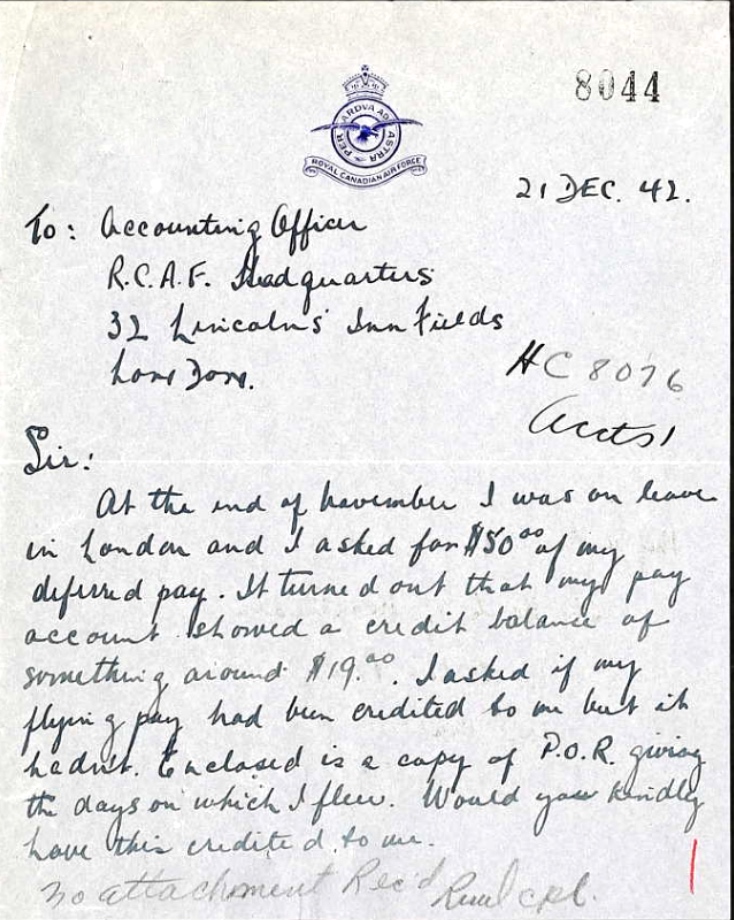 8044
PER ARDVA AD ASTRA
ROYAL CANADIAN AIR FORCE
21 DEC. 42.
To: Accounting Officer
R.C.A.F. Headquarters
32 Lincoln's Inn Fields
London.
HC 8076
Accts1
Sir:
At the end of November I was on leave
in London and I asked for $50.00 of my
deferred pay. It turned out that my pay
account showed a credit balance of
something around $19.00. I asked if my
flying pay had been credited to me but it
hadn't. Enclosed is a copy of P.O.R. giving
the days on which I flew. Would you kindly
have this credited to me.
No attachment Rec'd cpl.